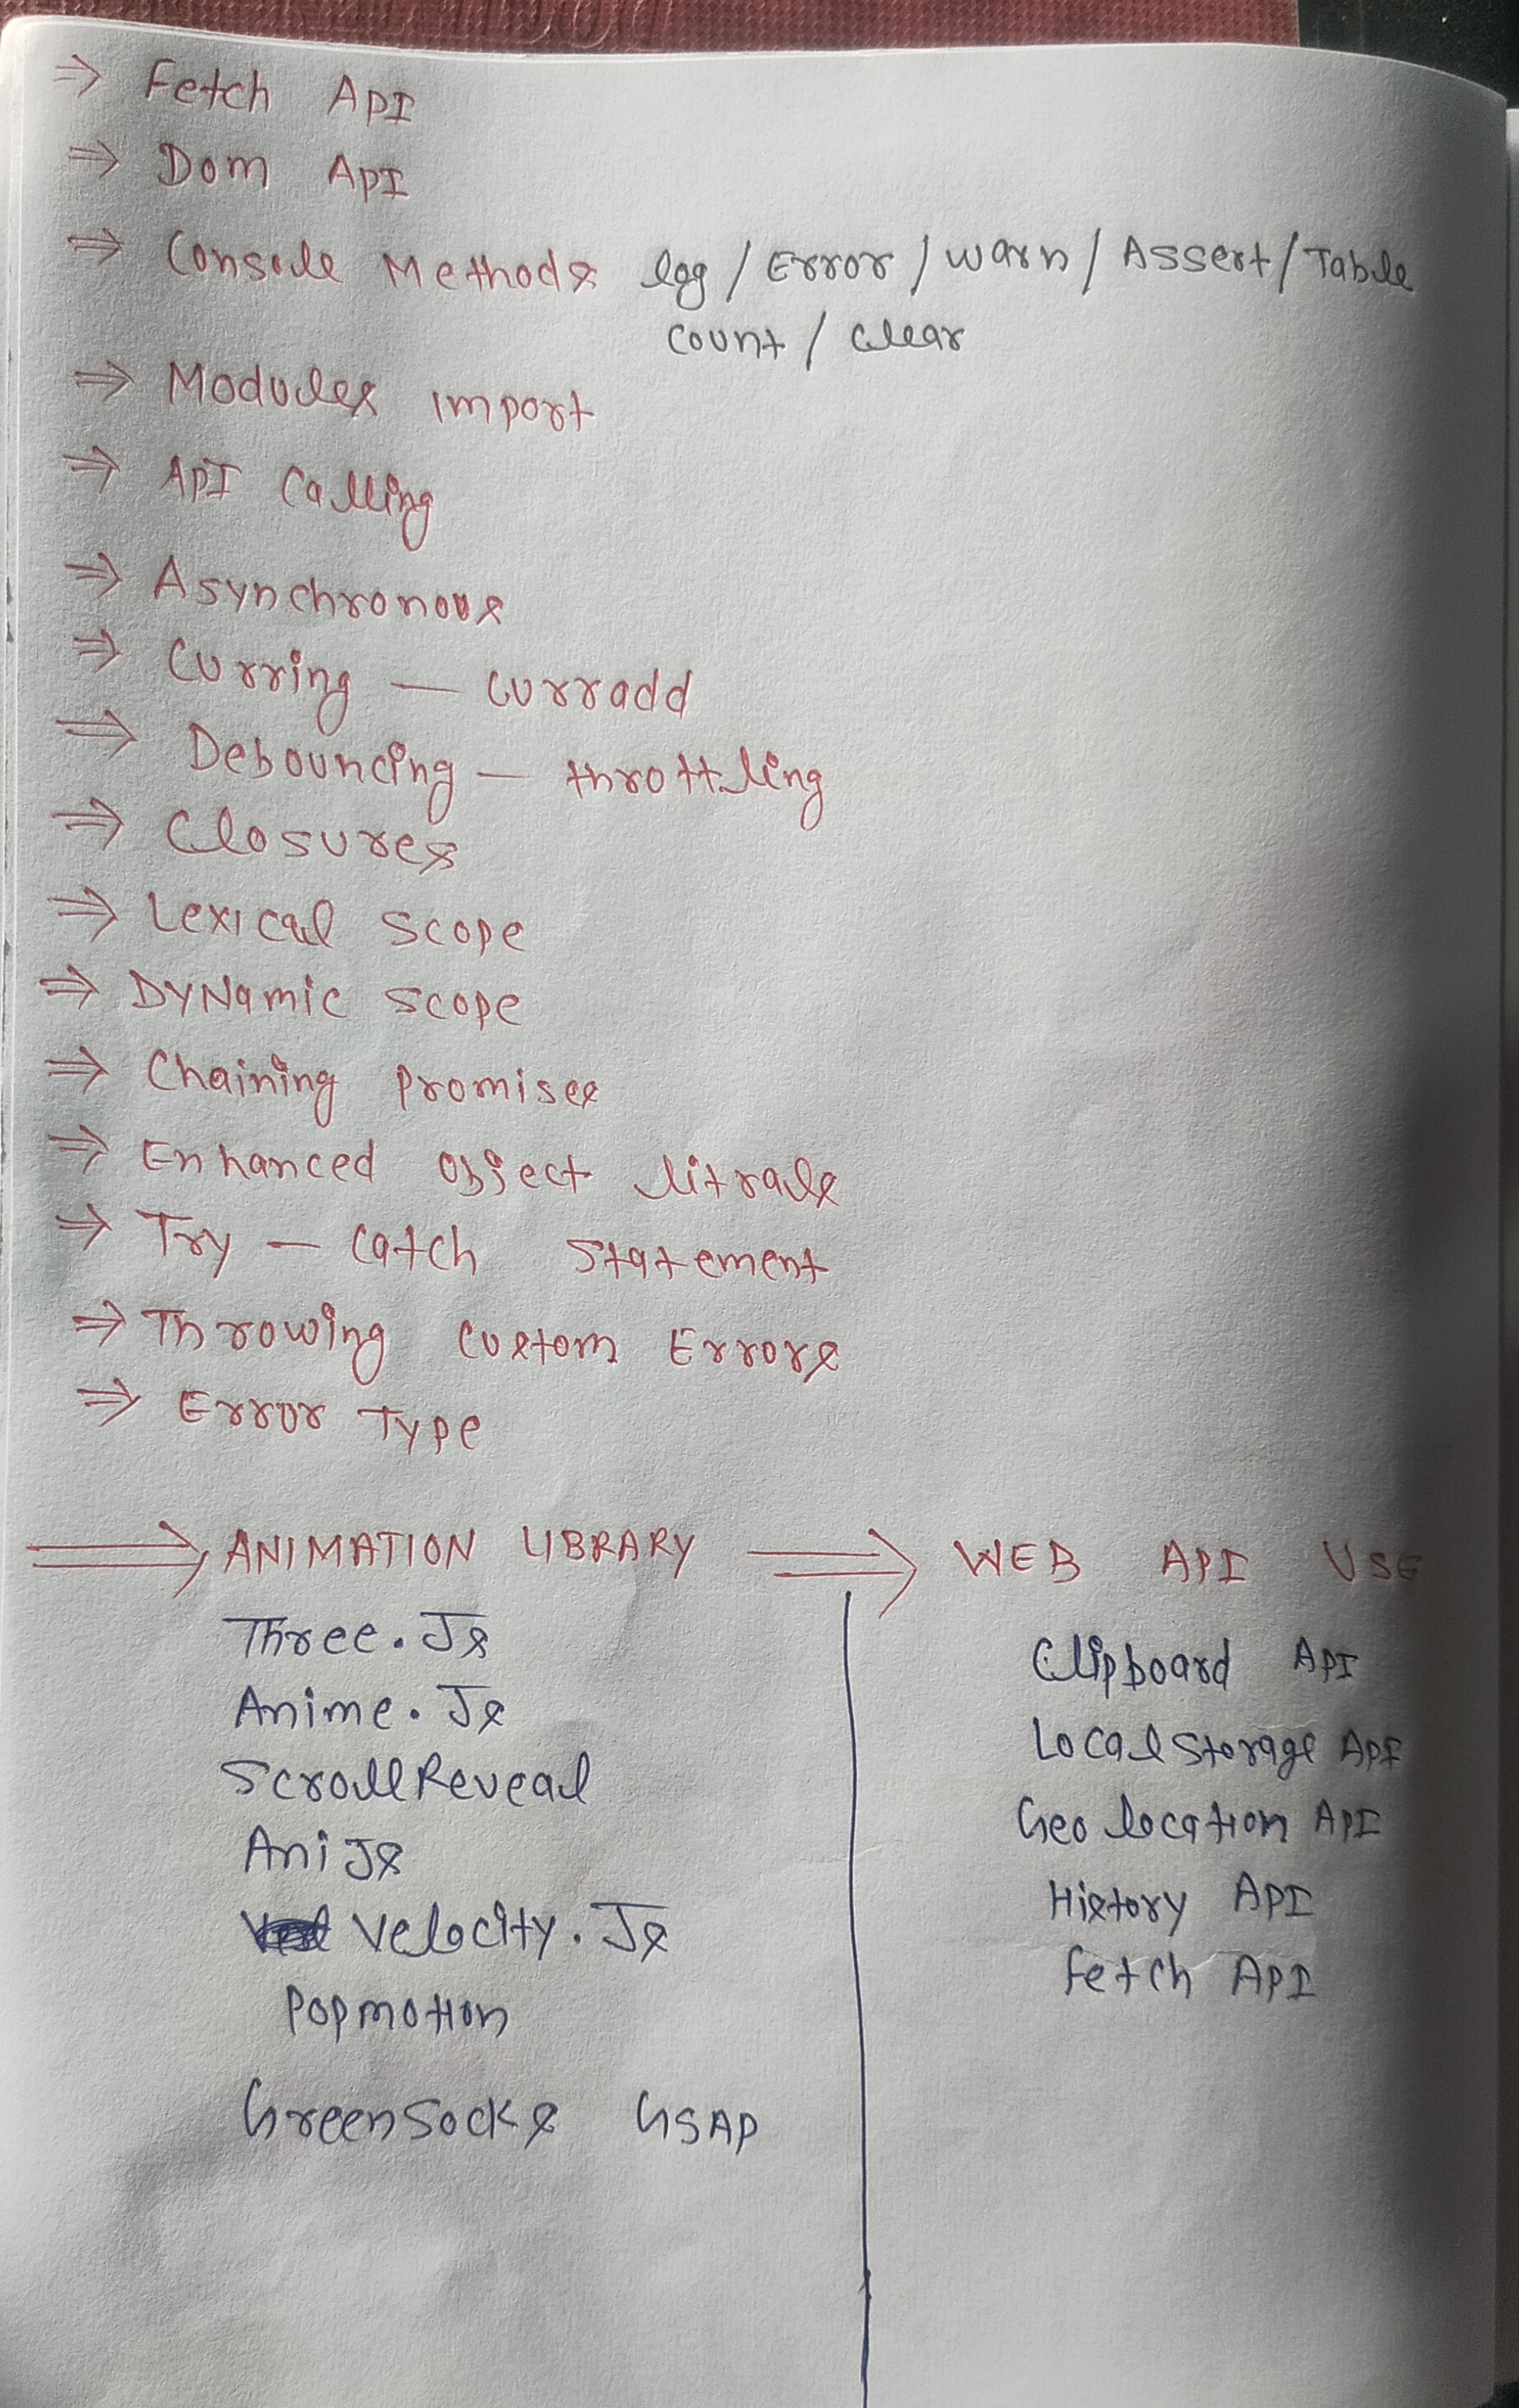 ⇒ Fetch API
⇒ Dom API
⇒ Console Methods log / Error / warn / Assert / Table
count / clear
⇒ Modules import
⇒ API Calling
⇒ Asynchronous
⇒ Curring — curradd
⇒ Debouncing — throttling
⇒ Closures
⇒ Lexical scope
⇒ DYNamic scope
⇒ Chaining promises
⇒ Enhanced object litrals
⇒ Try — catch statement
⇒ Throwing custom Errors
⇒ Error Type
⇒ ANIMATION LIBRARY ⇒ WEB API USE
Three.Js
Anime.Js
ScrollReveal
AniJs
Velocity.Js
Popmotion
Greensocks GSAP
Clipboard API
Localstorage API
Geolocation API
History API
fetch API